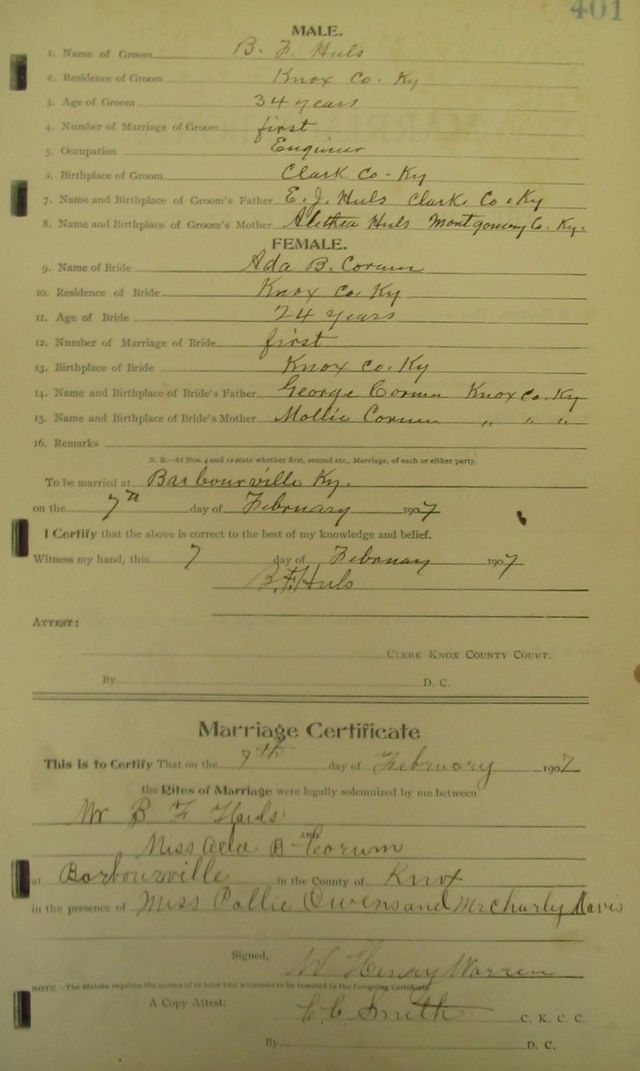 401
MALE.
1. Name of Groom B. F. Huls
2. Residence of Groom Knox Co. Ky
3. Age of Groom 34 years
4. Number of Marriage of Groom first
5. Occupation Enquiner
6. Birthplace of Groom Clark Co. Ky
7. Name and Birthplace of Groom's Father E. J. Huls Clark Co. Ky
8. Name and Birthplace of Groom's Mother Alethea Huls Montgomery Co. Ky.
FEMALE.
9. Name of Bride Ada B. Corum
10. Residence of Bride Knox Co. Ky
11. Age of Bride 24 years
12. Number of Marriage of Bride first
13. Birthplace of Bride Knox Co. Ky
14. Name and Birthplace of Bride's Father George Corum Knox Co. Ky
15. Name and Birthplace of Bride's Mother Mollie Corum " " "
16. Remarks
N. B.—At Nos. 4 and 12 state whether first, second etc., Marriage, of each or either party.
To be married at Barbourville Ky.
on the 7th day of February 1907
I Certify that the above is correct to the best of my knowledge and belief.
Witness my hand, this 7 day of Februay 1907
B. F. Huls
ATTEST:
CLERK KNOX COUNTY COURT.
By D. C.
Marriage Certificate
This is to Certify That on the 7th day of February 1907
the Rites of Marriage were legally solemnized by me between
Mr B F Huls
AND
Miss Ada B Corum
at Barbourville in the County of Knox
in the presence of Miss Pollie Owens and Mr Charly Davis
Signed, W Henry Warren
NOTE—The Statute requires the names of at least two witnesses to be inserted in the Foregoing Certificate
A Copy Attest: C. C. Smith C. K. C. C.
By D. C.